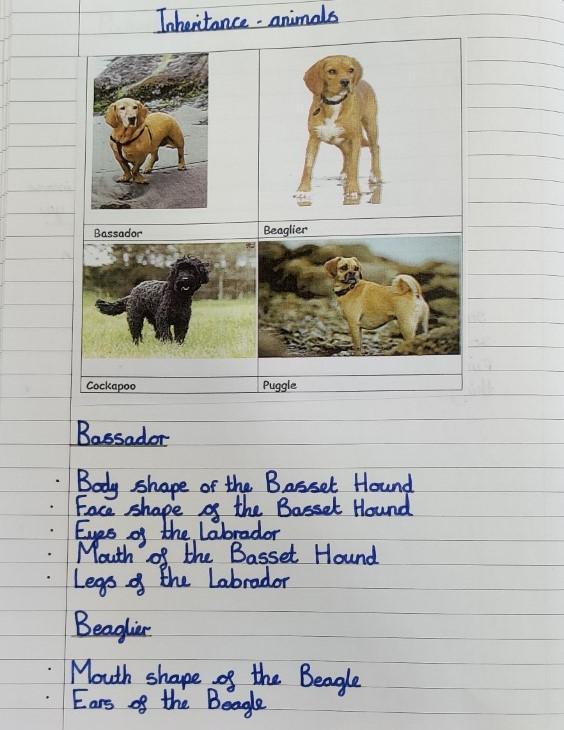 Inheritance - animals
Bassador
Beaglier
Cockapoo
Puggle
Bassador
· Body shape of the Basset Hound
· Face shape of the Basset Hound
· Eyes of the Labrador
· Mouth of the Basset Hound
· Legs of the Labrador
Beaglier
· Mouth shape of the Beagle
· Ears of the Beagle